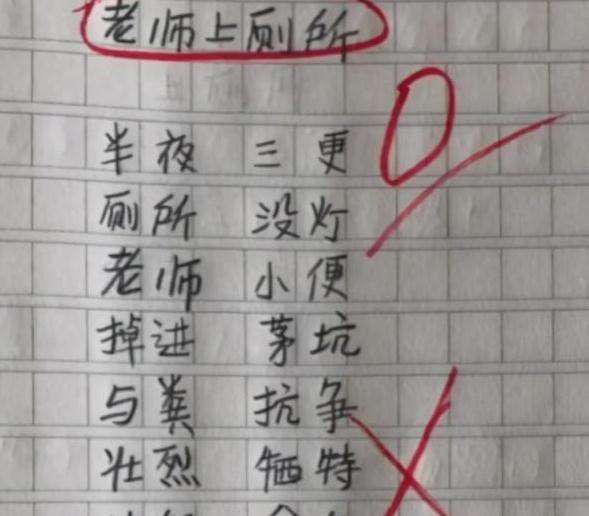 老师上厕所
0
半夜 三更
厕所 没灯
老师 小便
掉进 茅坑
与粪 抗争
壮烈 牺特